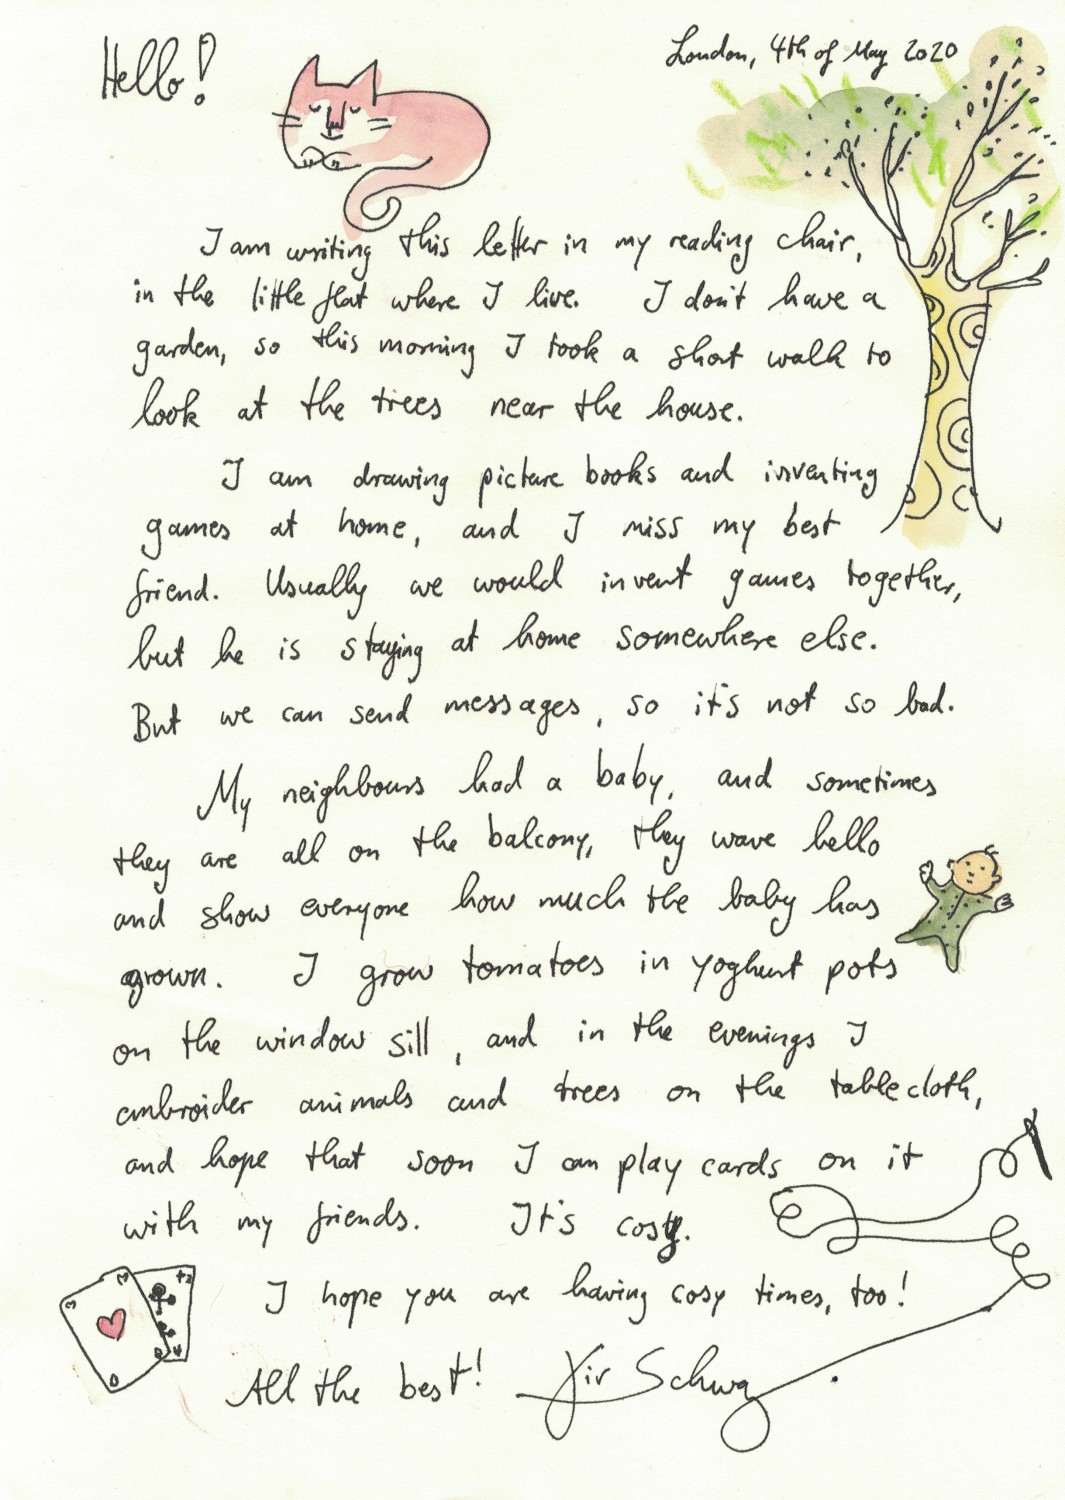 Hello!
London, 4th of May 2020
I am writing this letter in my reading chair,
in the little flat where I live. I don't have a
garden, so this morning I took a short walk to
look at the trees near the house.
I am drawing picture books and inventing
games at home, and I miss my best
friend. Usually we would invent games together,
but he is staying at home somewhere else.
But we can send messages, so it's not so bad.
My neighbours had a baby, and sometimes
they are all on the balcony, they wave hello
and show everyone how much the baby has
grown. I grow tomatoes in yoghurt pots
on the window sill, and in the evenings I
embroider animals and trees on the tablecloth,
and hope that soon I can play cards on it
with my friends. It's cosy.
I hope you are having cosy times, too!
All the best!